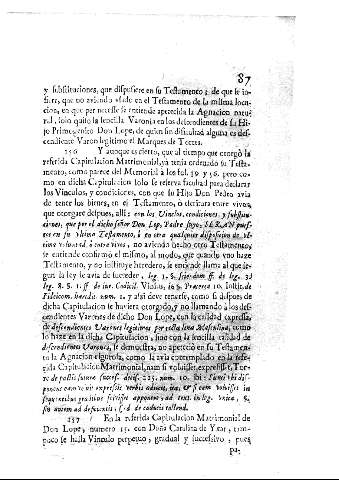 87
y substituciones, que dispusiere en su Testamento; de que se in-
fiere, que no aviendo usado en el Testamento de la misma locu-
cion, en que per necesse se entiende apetecida la Agnacion natu
ral, solo quiso la sencilla Varonia en los descendientes de su Hi-
jo Primogenico Don Lope, de quien sin dificultad alguna es des-
cendiente Varon legitimo el Marques de Torres.
256 Y aunque es cierto, que al tiempo que otorgò la
referida Capitulacion Matrimonial, yà tenia ordenado su Testa-
mento, como parece del Memorial à los fol. 19 y 56. pero co-
mo en dicha Capitulacion solo se reserva facultad para declarar
los Vinculos, y condiciones, con que su Hijo Don Pedro avia
de tener los bienes, en el Testamento, ò escritura entre vivos,
que otorgare despues, alli: con los Vinclos, condiciones, y substitu-
ciones, que per el dicho señor Don Lop, Padre suyo, SERAN pues-
tos en su ultimo Testamento, ò en otra qualquiere disposicion de ul-
tima voluntad, ò entre vivos, no aviendo hecho otro Testamento,
se entiende confirmò el mismo, al modo, que quando uno haze
Testamento, y no instituye heredero, se entiende llama al que se-
gun la ley le avia de suceder,
Fideicom. heredit. num. 1. y assi deve tenerse, como si despues de
dicha Capitulacion le huviera otorgado, y no llamando à los des-
cendientes Varones de dicho Don Lope, con la calidad expressa
de descendientes Varones legitimos por recta linea Masculina, como
lo haze en la dicha Capitulacion, sino con la sencilla calidad de
descendientes Varones, se demuestra, no apeteciò en su Testamen-
to la Agnacion rigurosa, como la avia contemplado en la refe-
rida Capitulacion Matrimonial, nam si voluisset expressisset, Tor-
re de pactis futurae success.
257 En la referida Capitulacion Matrimonial de
Don Lope, numero 15. con Doña Catalina de Yxar, tam-
poco se halla Vinculo perpetuo, gradual y successivo, pues